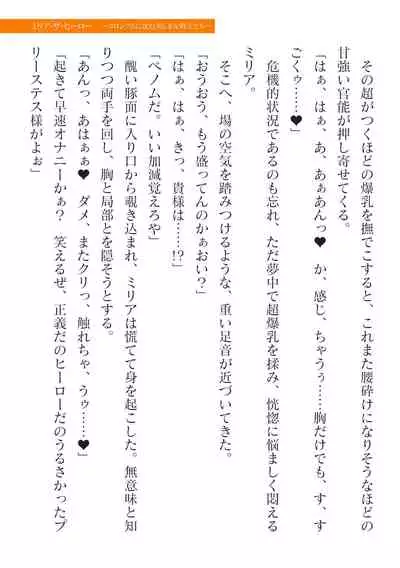 ミリア・ザ・ヒーロー
その超がつくほどの爆乳を撫でこすると、これまた腰砕けになりそうなほどの
甘強い官能が押し寄せてくる。
「はぁ、はぁ、あ、あぁあんっ♥　か、感じ、ちゃうぅ……胸だけでも、す、す
ごくゥ……♥」
危機的状況であるのも忘れ、ただ夢中で超爆乳を揉み、恍惚に悩ましく悶える
ミリア。
そこへ、場の空気を踏みつけるような、重い足音が近づいてきた。
「おうおう、もう盛ってんのかぁおい？」
「はぁ、はぁ、きっ、貴様は……!?」
「ペノムだ。いい加減覚えろや」
醜い豚面に入り口から覗き込まれ、ミリアは慌てて身を起こした。無意味と知
りつつ両手を回し、胸と局部とを隠そうとする。
「あんっ、あはぁぁ♥　ダメ、またクリっ、触れちゃ、うゥ……♥」
「起きて早速オナニーかぁ？　笑えるぜ、正義だのヒーローだのうるさかったプ
リーステス様がよぉ」